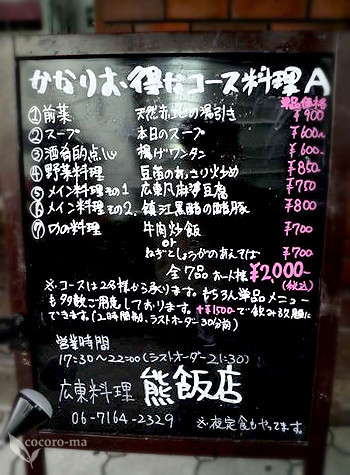 かなりお得なコース料理A
単品価格
①前菜 天然あこうの湯引き ¥900
②スープ 本日のスープ ¥600
③酒肴的点心 揚げワンタン ¥600
④野菜料理 豆苗のあっさり炒め ¥850
⑤メイン料理その1 広東風麻婆豆腐 ¥750
⑥メイン料理その2. 鎮江黒酢の酢豚 ¥800
⑦〆の料理 牛肉炒飯 ¥700
or
ねぎとしょうがのあえそば ¥700
全7品 お一人様 ¥2,000-
(税込)
※コースは2名様から承ります。もちろん単品メニュー
も多数ご用意しております。+¥1500-で飲み放題に
できます。(2時間制、ラストオーダー30分前)
営業時間
17:30〜22:00(ラストオーダー21:30)
広東料理 熊飯店
06-7164-2329 ※夜定食もやってます
cocoro-ma